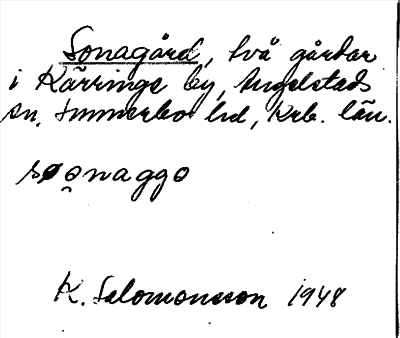 Sonagård, två gårdar
i Kärringe by, Angelstads
sn, Sunnerbo hd, Krb. län.
søo̯naggo
K. Salomonsson 1948